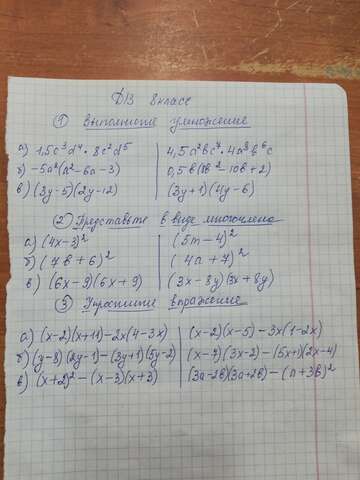 Д/З 8 класс
① Выполните умножение
а) 1,5c³d⁴ · 8c²d⁵ | 4,5a²bc⁷ · 4a³b⁶c
б) -5a²(a²-6a-3) | 0,5b(8b²-10b+2)
в) (3y-5)(2y-12) | (3y+1)(4y-6)
② Представьте в виде многочлена
а) (4x-3)² | (5m-4)²
б) (7b+6)² | (4a+7)²
в) (6x-9)(6x+9) | (3x-8y)(3x+8y)
③ Упростите выражение
а) (x-2)(x+11)-2x(4-3x) | (x-2)(x-5)-3x(1-2x)
б) (y-8)(2y-1)-(3y+1)(5y-2) | (x-7)(3x-2)-(5x+1)(2x-4)
в) (x+2)²-(x-3)(x+3) | (3a-2b)(3a+2b)-(a+3b)²